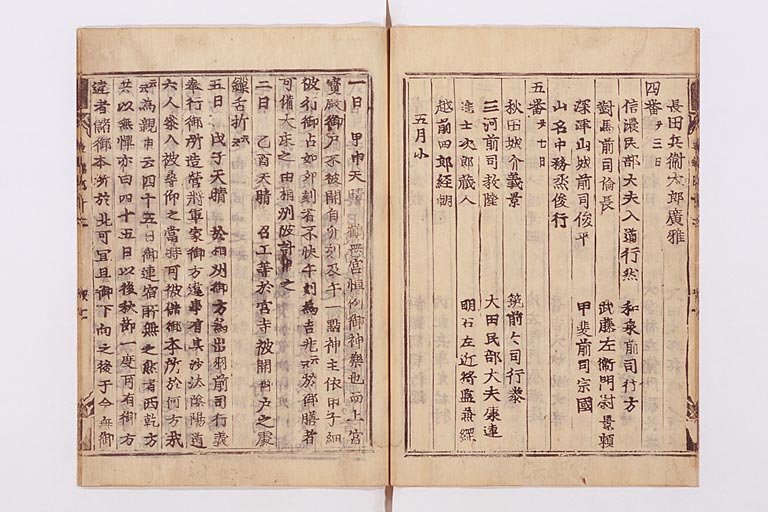 長田兵衛太郎廣雅
四番 三日
信濃民部大夫入道行然 和泉前司行方
對馬前司倫長 武藤左衛門尉景頼
深澤山城前司俊平 甲斐前司宗國
山名中務丞俊行
五番 七日
秋田城介義景 筑前々司行泰
三河前司教隆 大田民部大夫康連
進士次郎蔵人 明石左近将監兼綱
越前四郎経朝
五月小
一日 甲申天晴 鶴岳宮恒例御神樂也而上宮
寶殿御戸不被開自 刻及午一點神主依甲子細
被行御占如卯刻者不快午刻為吉兆云々於御膳者
可備大床之由相州被計申之
二日 乙酉天晴 召工等於宮寺被開御戸之處
鑰舌折云々
五日 戊子天晴 於相州御方為出羽前司行義
奉行御所造營将軍家御方違事有其沙汰陰陽道
六人参入被尋仰之當時可被儲御本所於何方哉
為親申云四十五日御連宿 無之 者西乾方
共以無憚亦自四十五日以後秋節一度可有御方
違者儲御本所於北可宜且御下向之後于今無御